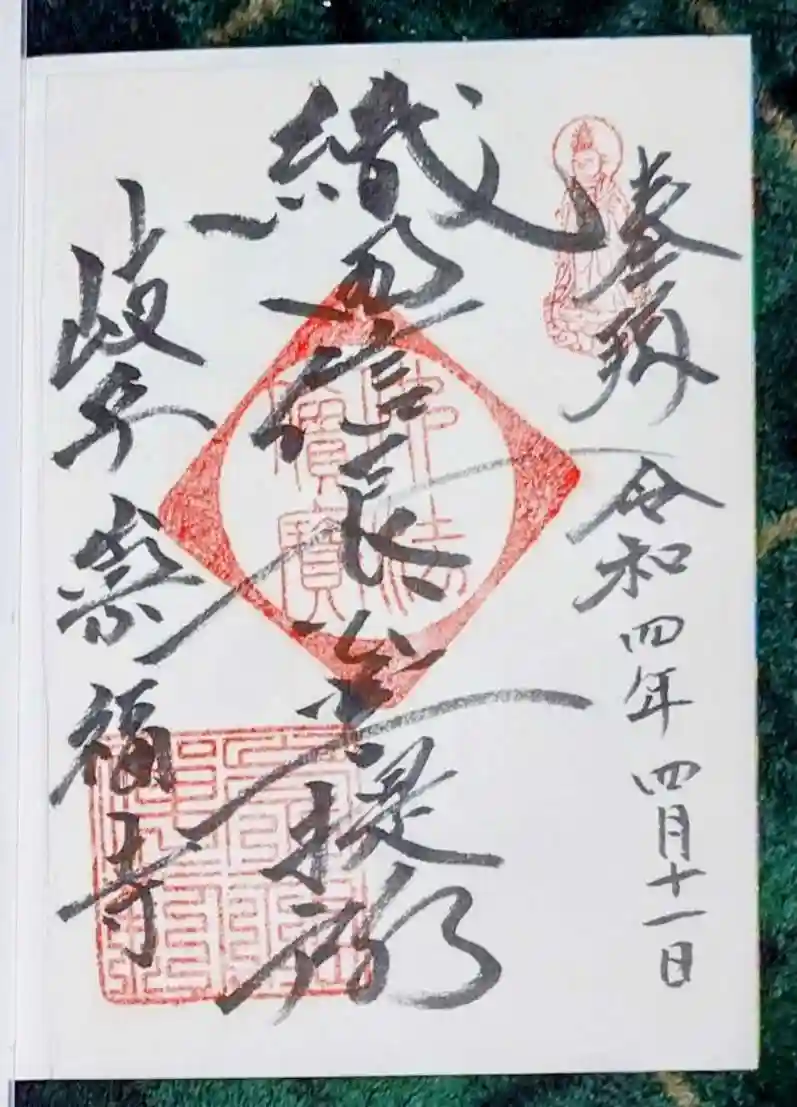 奉拝
令和四年四月十一日
織田信長菩提所
佛法
僧寶
岐阜 崇福寺